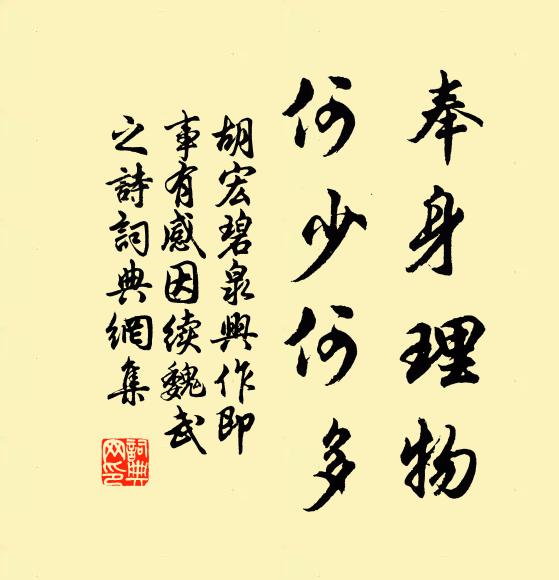 奉身理物
何少何多
胡宏碧泉興作即
事有感因續魏武
之詩詞典網集
詞典網印